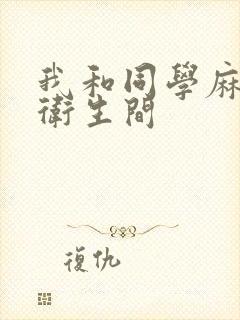 我和同學麻
衛生間
復仇